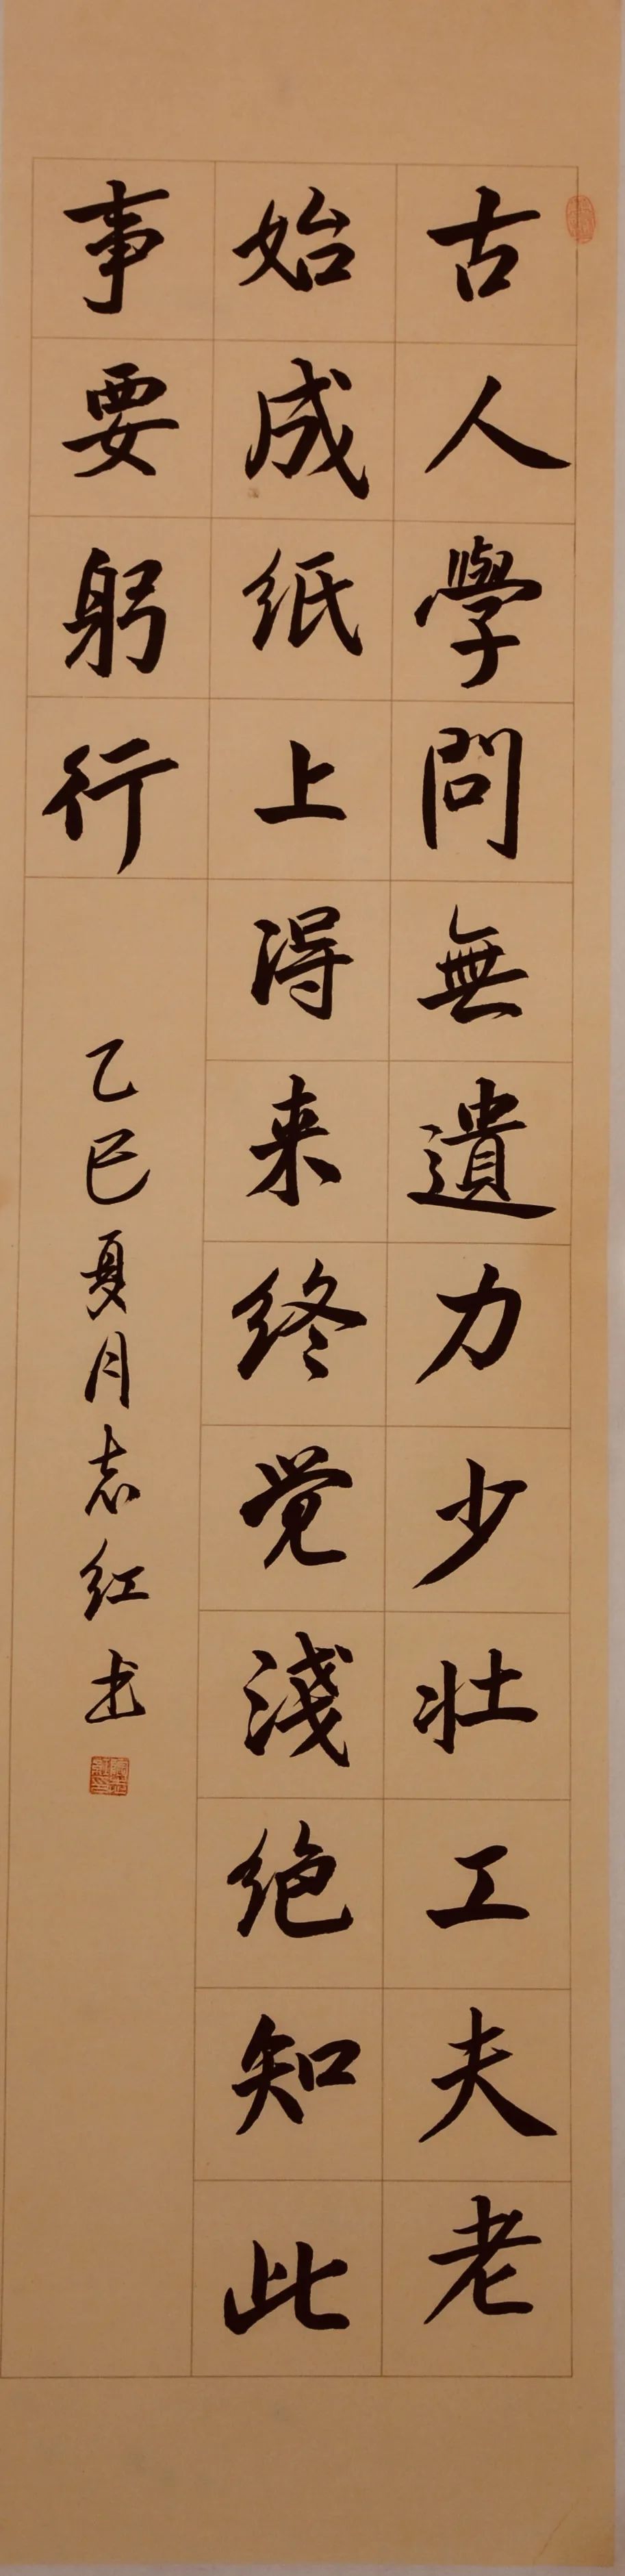 古人學問無遺力少壯工夫老
始成纸上得来终觉淺绝知此
事要躬行
乙巳夏月志红书